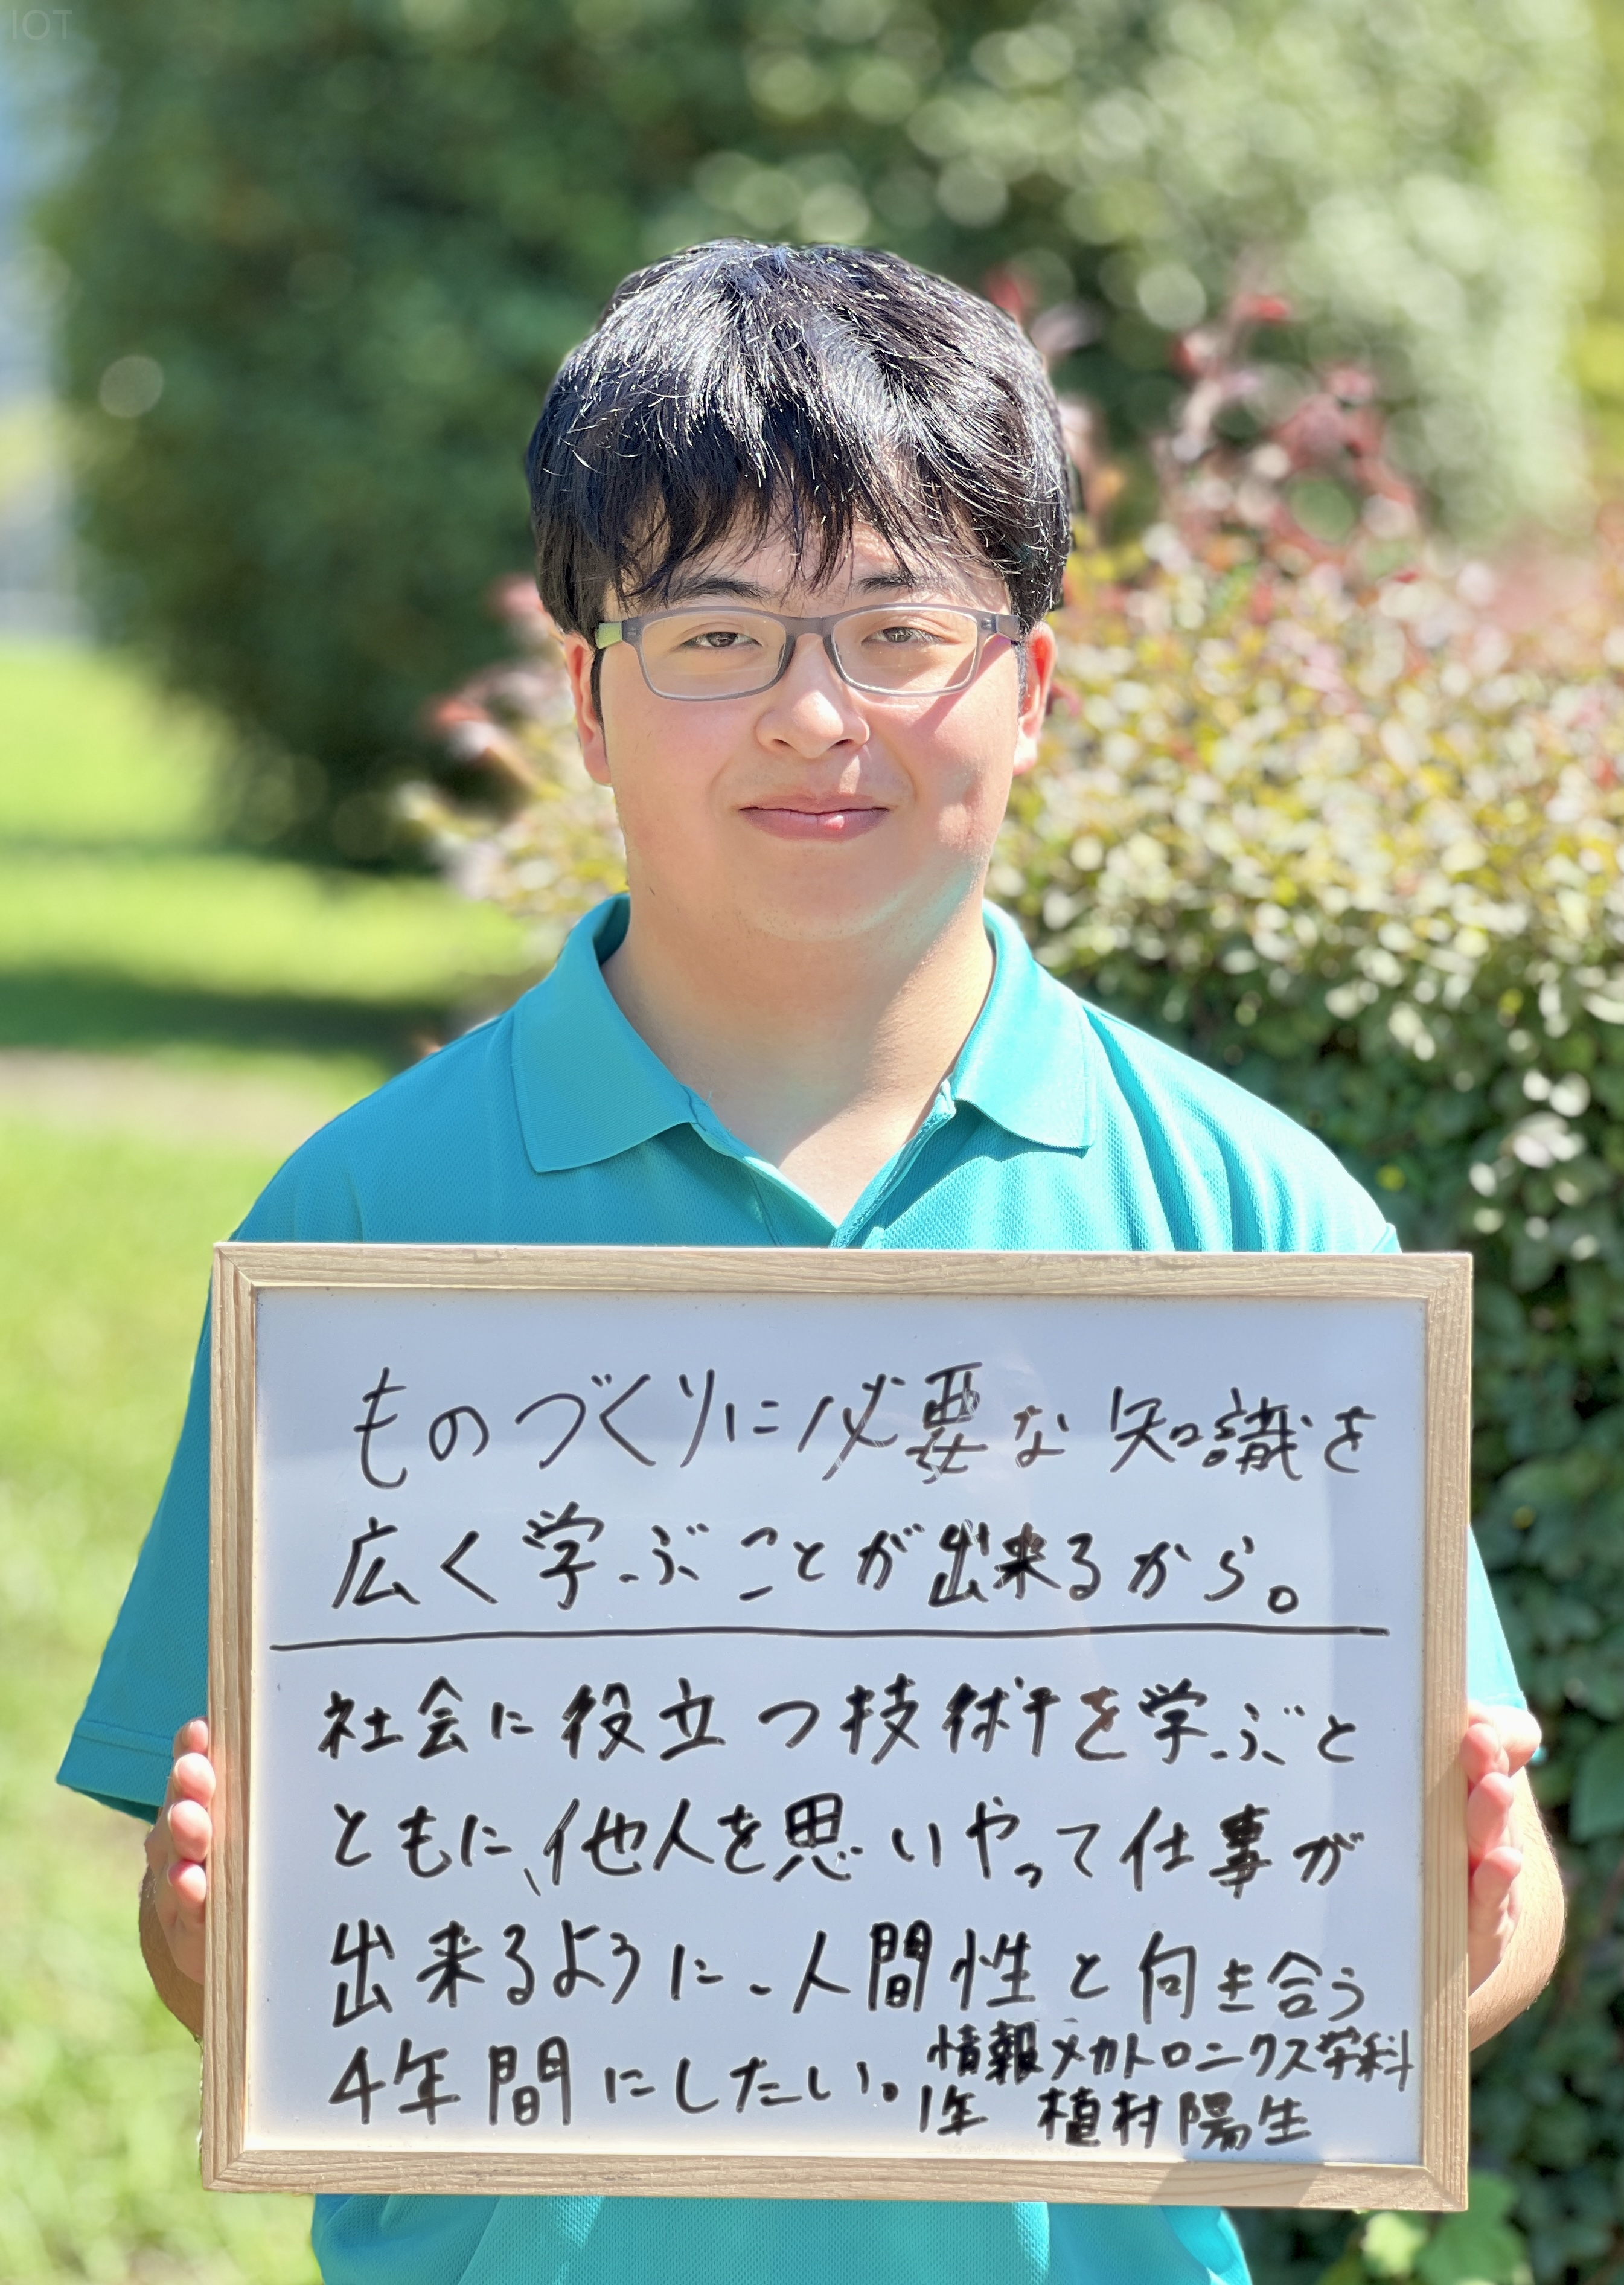 IOT
ものづくりに必要な知識を
広く学ぶことが出来るから。
社会に役立つ技術を学ぶと
ともに、他人を思いやって仕事が
出来るように、人間性と向き合う
4年間にしたい。
情報メカトロニクス学科
1年 植村陽生